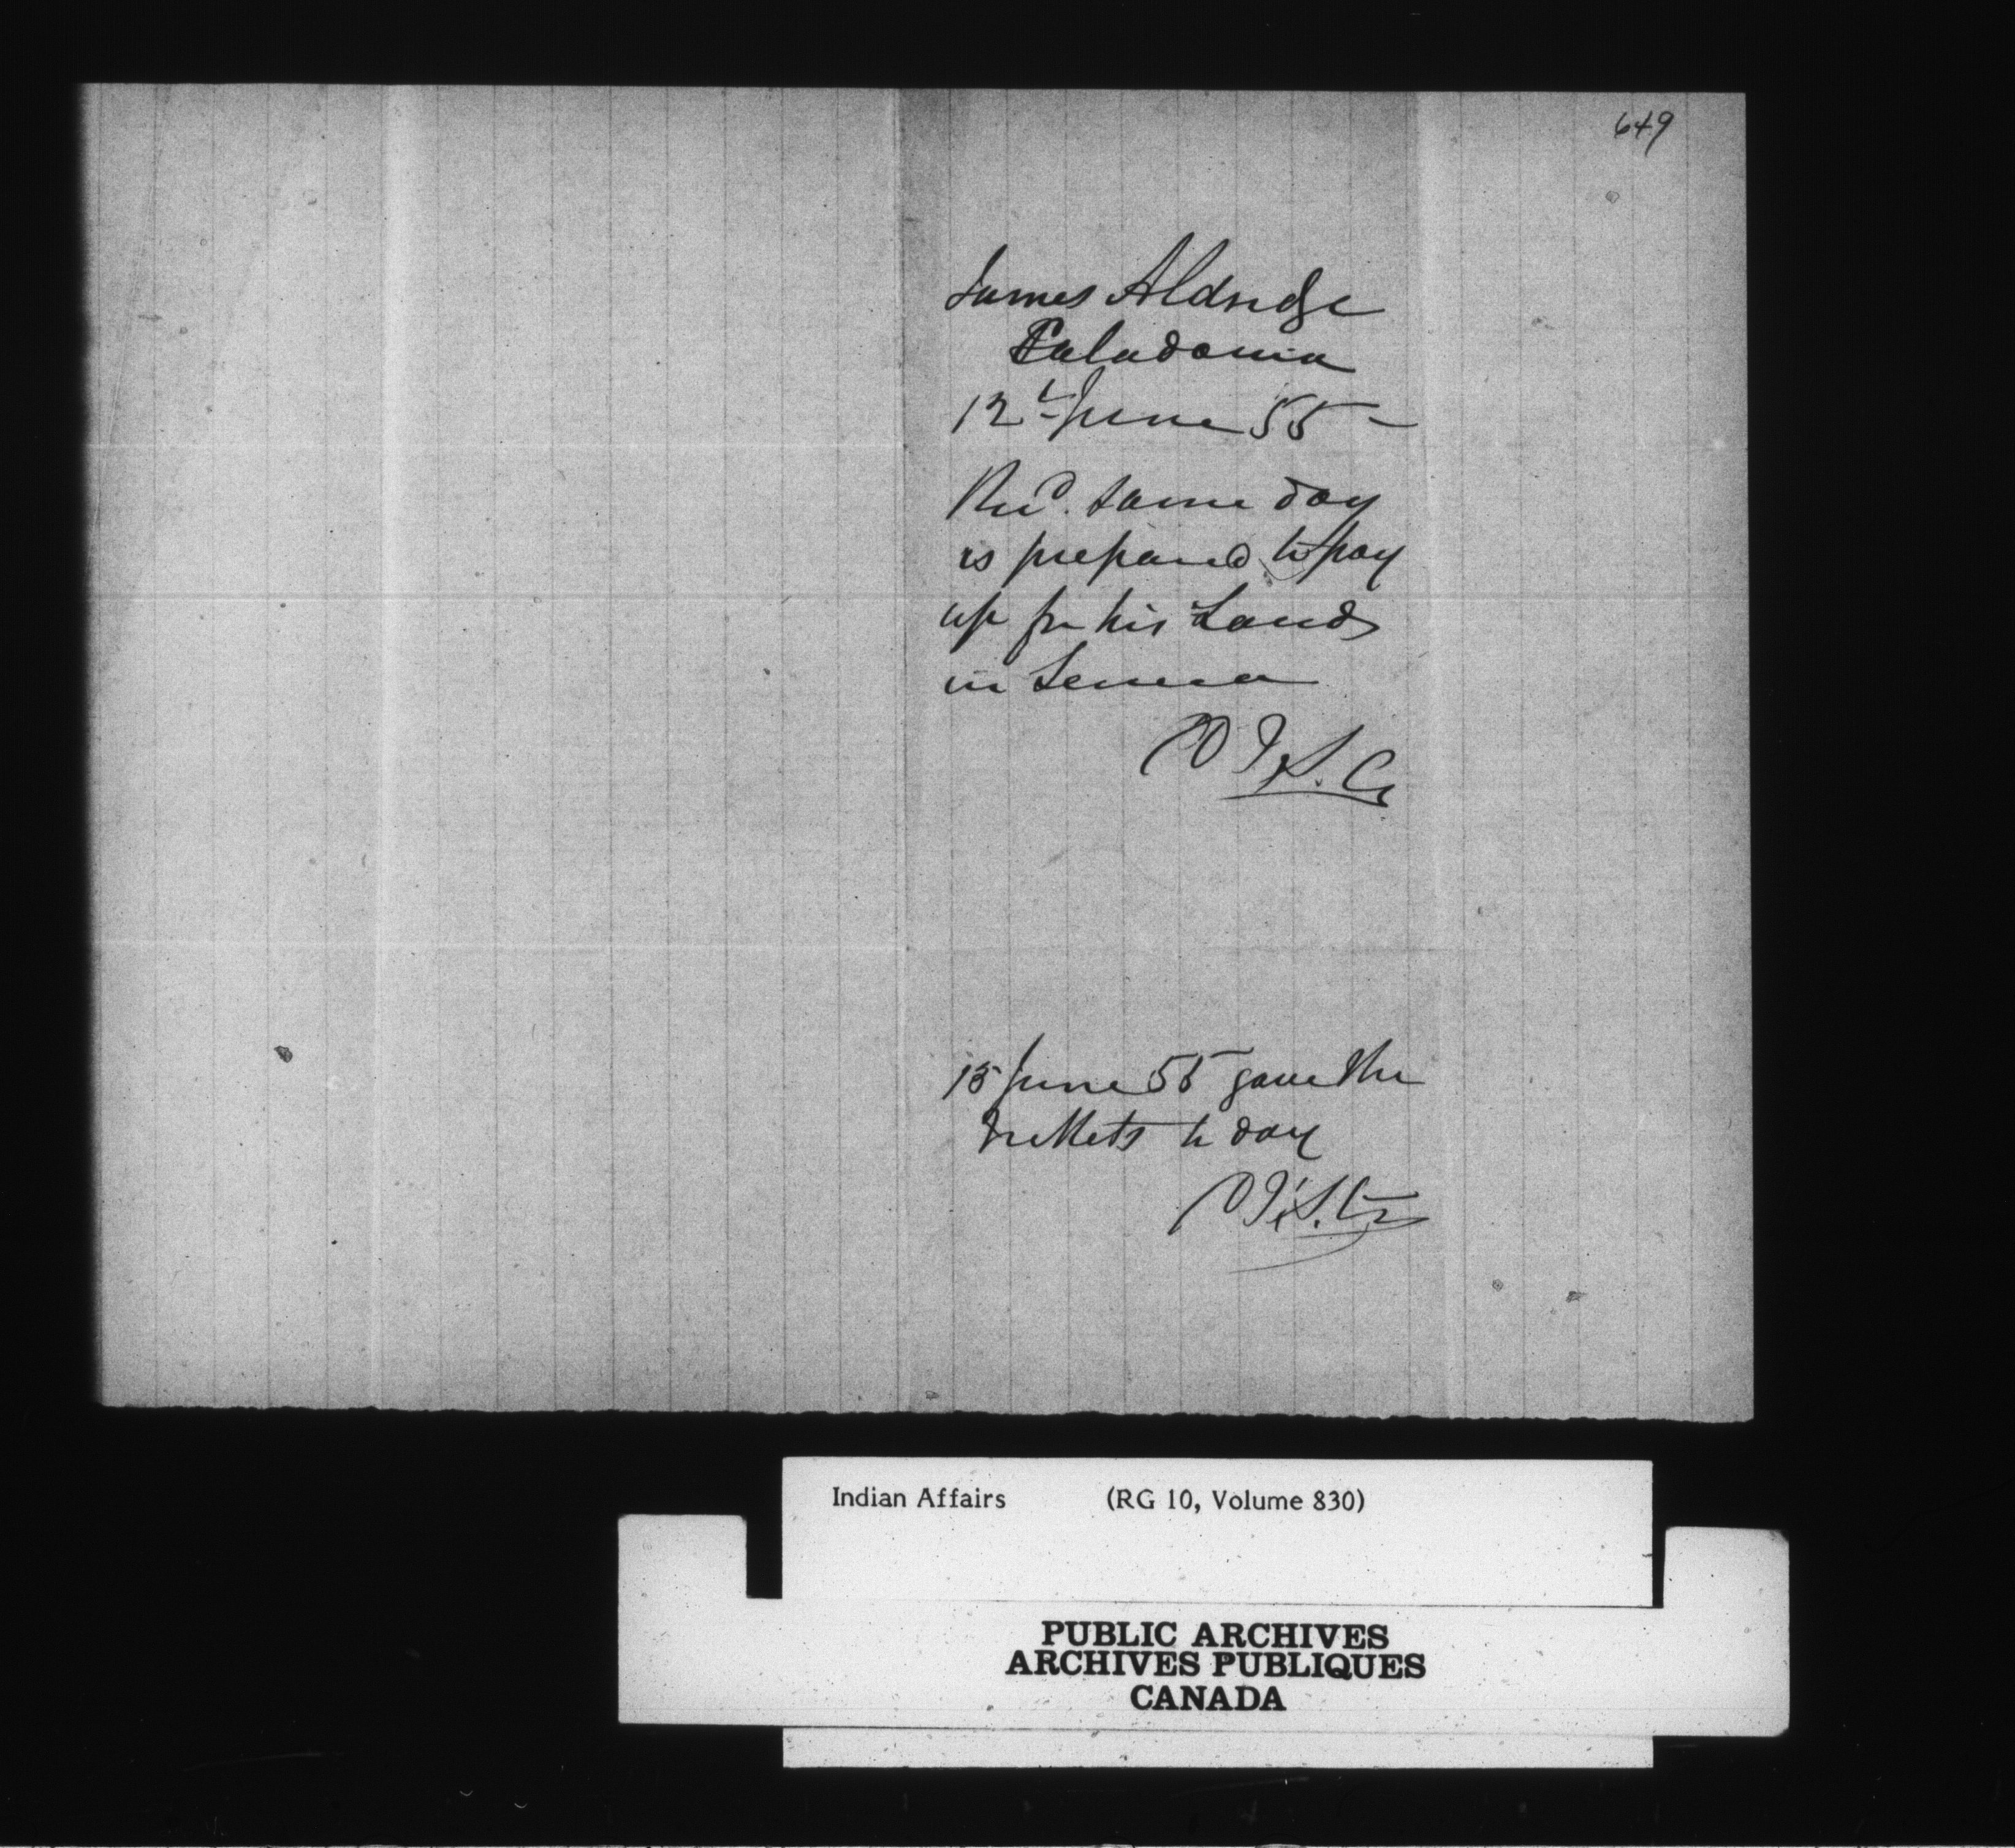 649
James Aldridge
Caladonia
12th June 55 -
Recd. same day
is prepared to pay
up for his Lands
in Seneca
15 June 55 gave the
tickets to day
Indian Affairs (RG 10, Volume 830)
PUBLIC ARCHIVES
ARCHIVES PUBLIQUES
CANADA